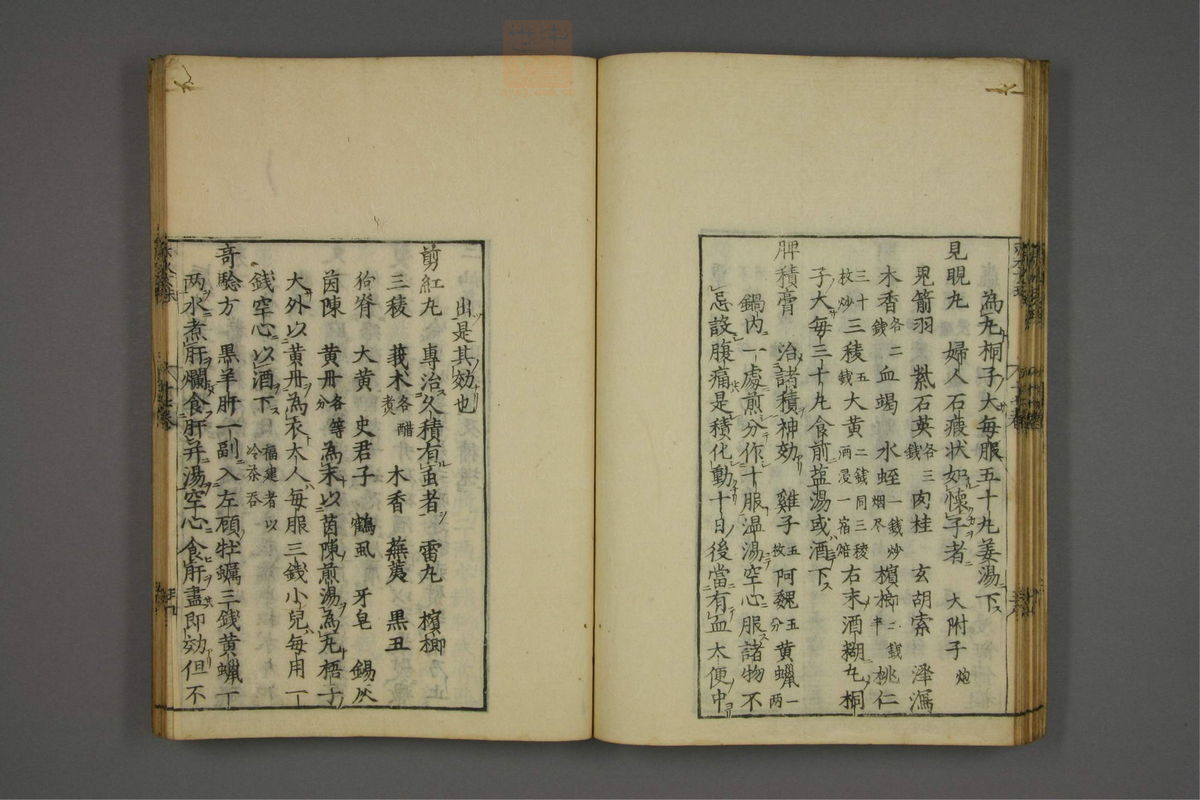 為丸桐子大毎服五十丸姜湯下
見睍丸 婦人石瘕状如懐子者 大附子炮
鬼箭羽 紫石英各三錢 肉桂 玄胡索 澤瀉
木香各二錢 血竭 水蛭一錢炒烟尽 檳榔二錢半 桃仁
三十枚炒 三稜五錢 大黄二錢同三稜酒浸一宿焙 右末酒糊丸桐
子大毎三十丸食前塩湯或酒下
脾積膏 治諸積神効 雞子五枚 阿魏五分 黄蝋一両
鍋内一處煎分作十服温湯空心服諸物不
忌設腹痛是積化動十日後當有血大便中
出是其効也
剪紅丸 專治久積有虫者 雷丸 檳榔
三稜 莪朮各醋煑 木香 蕪荑 黒丑
狗脊 大黄 史君子 鶴虱 牙皂 錫灰
茵陳 黄丹各等分 為末以茵陳煎湯為丸梧子
大外以黄丹為衣大人毎服三錢小兒毎用一
錢空心以酒下 福建者以冷茶吞
奇驗方 黒羊肝一副入左顧牡蠣三錢黄蝋一
两水煮肝爛食肝并湯空心食肝盡即効但不